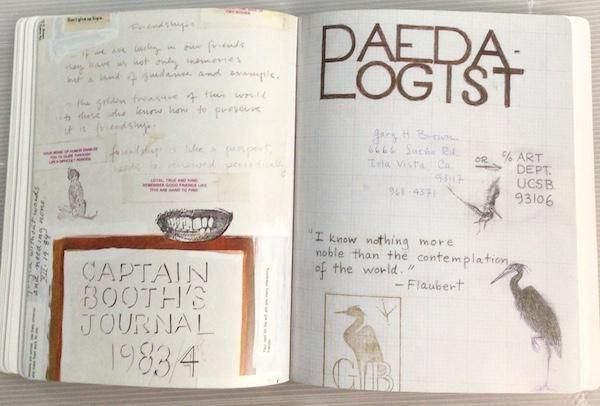 Don't give up hope.
Friendships
if we are lucky in our friends
they have us not only memories
but a kind of guidance and example.
the golden treasure of this world
to those who know how to preserve
it is friendship.
friendship is like a passport,
needs to be renewed periodically
YOUR SENSE OF HUMOR ENABLES
YOU TO GLIDE THROUGH
LIFE'S DIFFICULT PERIODS
LOYAL, TRUE AND KIND.
REMEMBER GOOD FRIENDS LIKE
THIS ARE HARD TO FIND
without words
and needing none
CAPTAIN
BOOTH'S
JOURNAL
1983/4
DAEDA-
LOGIST
Gary H. Brown
6666 Sueño Rd
Isla Vista, Ca.
93117
968-4371
OR → c/o ART
DEPT.
UCSB
93106
"I know nothing more
noble than the contemplation
of the world."
—Flaubert
GHB